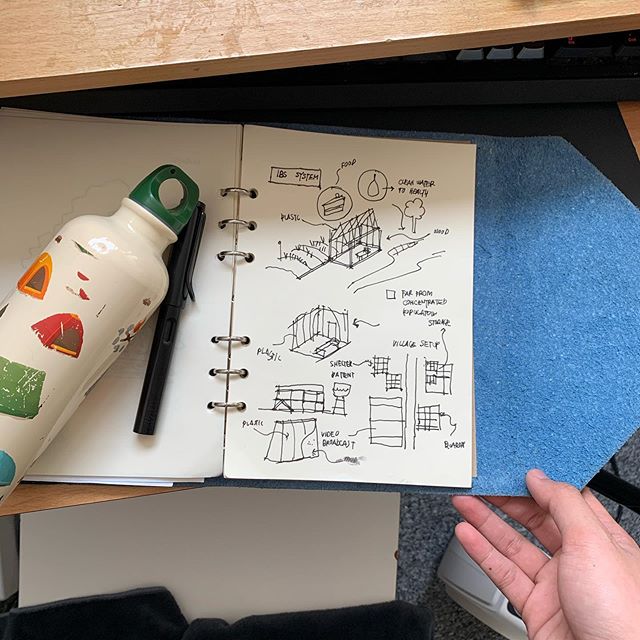 IBS SYSTEM
FOOD
CLEAN WATER
TO HEALTHY
PLASTIC
WOOD
FAR FROM
CONCENTRATED
POPULATION
STORAGE
PLASTIC
VILLAGE SETUP
SHELTER
PLASTIC
VIDEO
BROADCAST